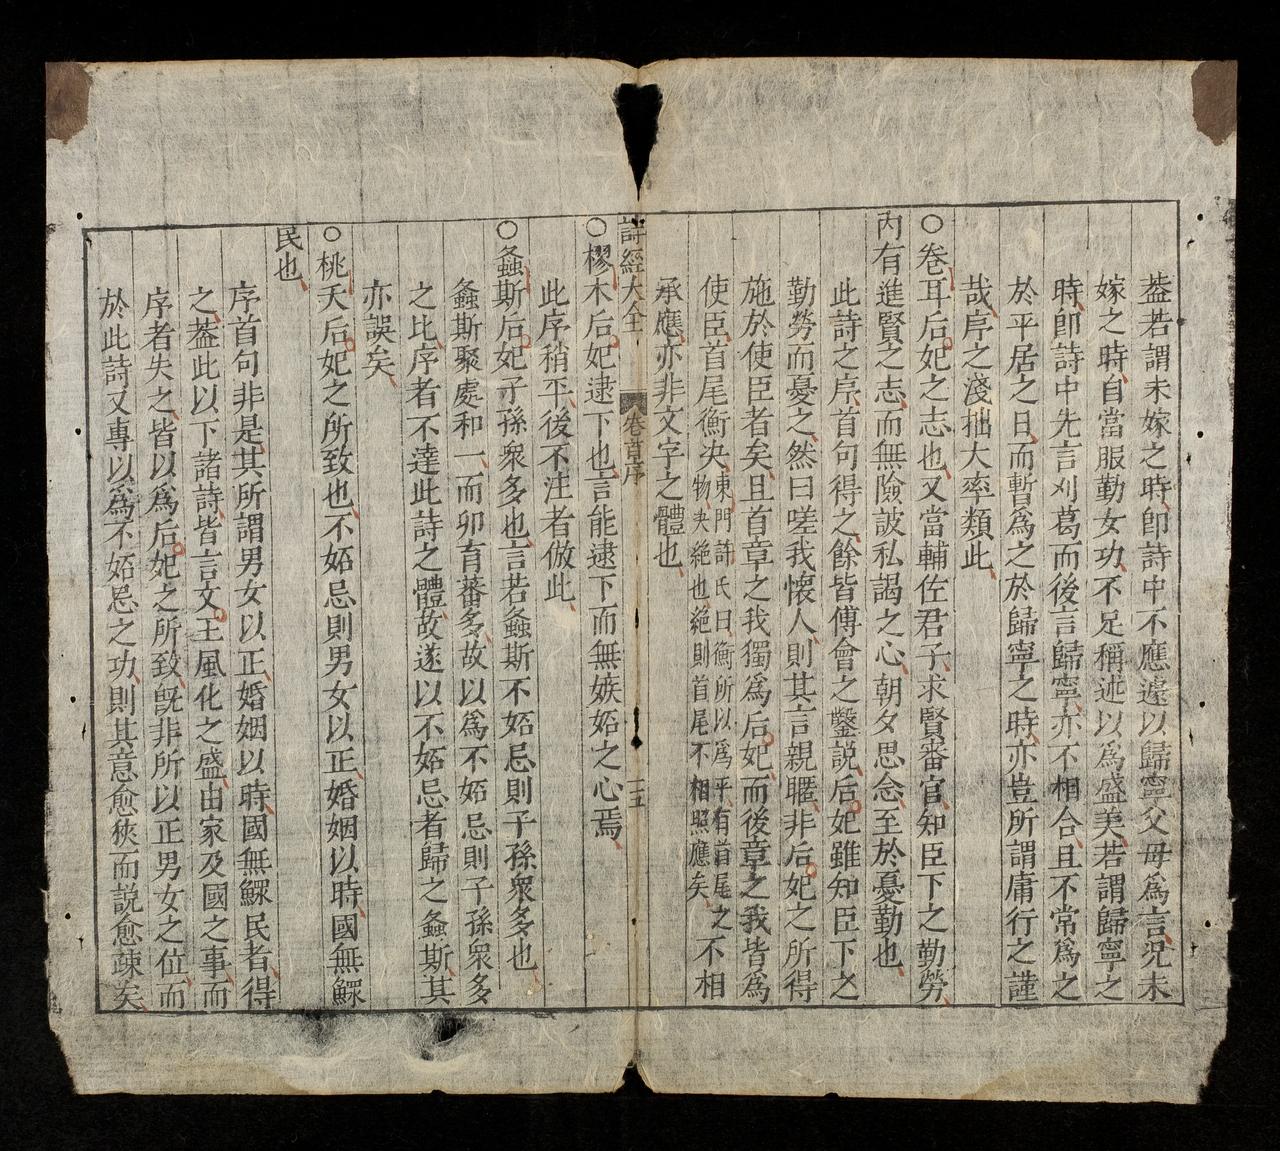 葢若謂未嫁之時即詩中不應遽以歸寧父母爲言况未
嫁之時自當服勤女功不足稱述以爲盛美若謂歸寧之
時即詩中先言刈葛而後言歸寧亦不相合且不常爲之
於平居之日而暫爲之於歸寧之時亦豈所謂庸行之謹
哉序之淺拙大率類此
○卷耳后妃之志也又當輔佐君子求賢審官知臣下之勤勞
内有進賢之志而無險詖私謁之心朝夕思念至於憂勤也
此詩之序首句得之餘皆傅會之鑿説后妃雖知臣下之
勤勞而憂之然曰嗟我懷人則其言親暱非后妃之所得
施於使臣者矣且首章之我獨爲后妃而後章之我皆爲
使臣首尾衡决東門許氏曰衡所以爲平有首尾之物夬絶也絶則首尾不相照應矣不相
承應亦非文字之體也
詩經大全 卷首序 十五
○樛木后妃逮下也言能逮下而無嫉妬之心焉
此序稍平後不注者倣此
○螽斯后妃子孫衆多也言若螽斯不妬忌則子孫衆多也
螽斯聚處和一而卵育蕃多故以爲不妬忌則子孫衆多
之比序者不達此詩之體故遂以不妬忌者歸之螽斯其
亦誤矣
○桃夭后妃之所致也不妬忌則男女以正婚姻以時國無鰥
民也
序首句非是其所謂男女以正婚姻以時國無鰥民者得
之葢此以下諸詩皆言文王風化之盛由家及國之事而
序者失之皆以爲后妃之所致旣非所以正男女之位而
於此詩又專以爲不妬忌之功則其意愈狹而説愈疎矣